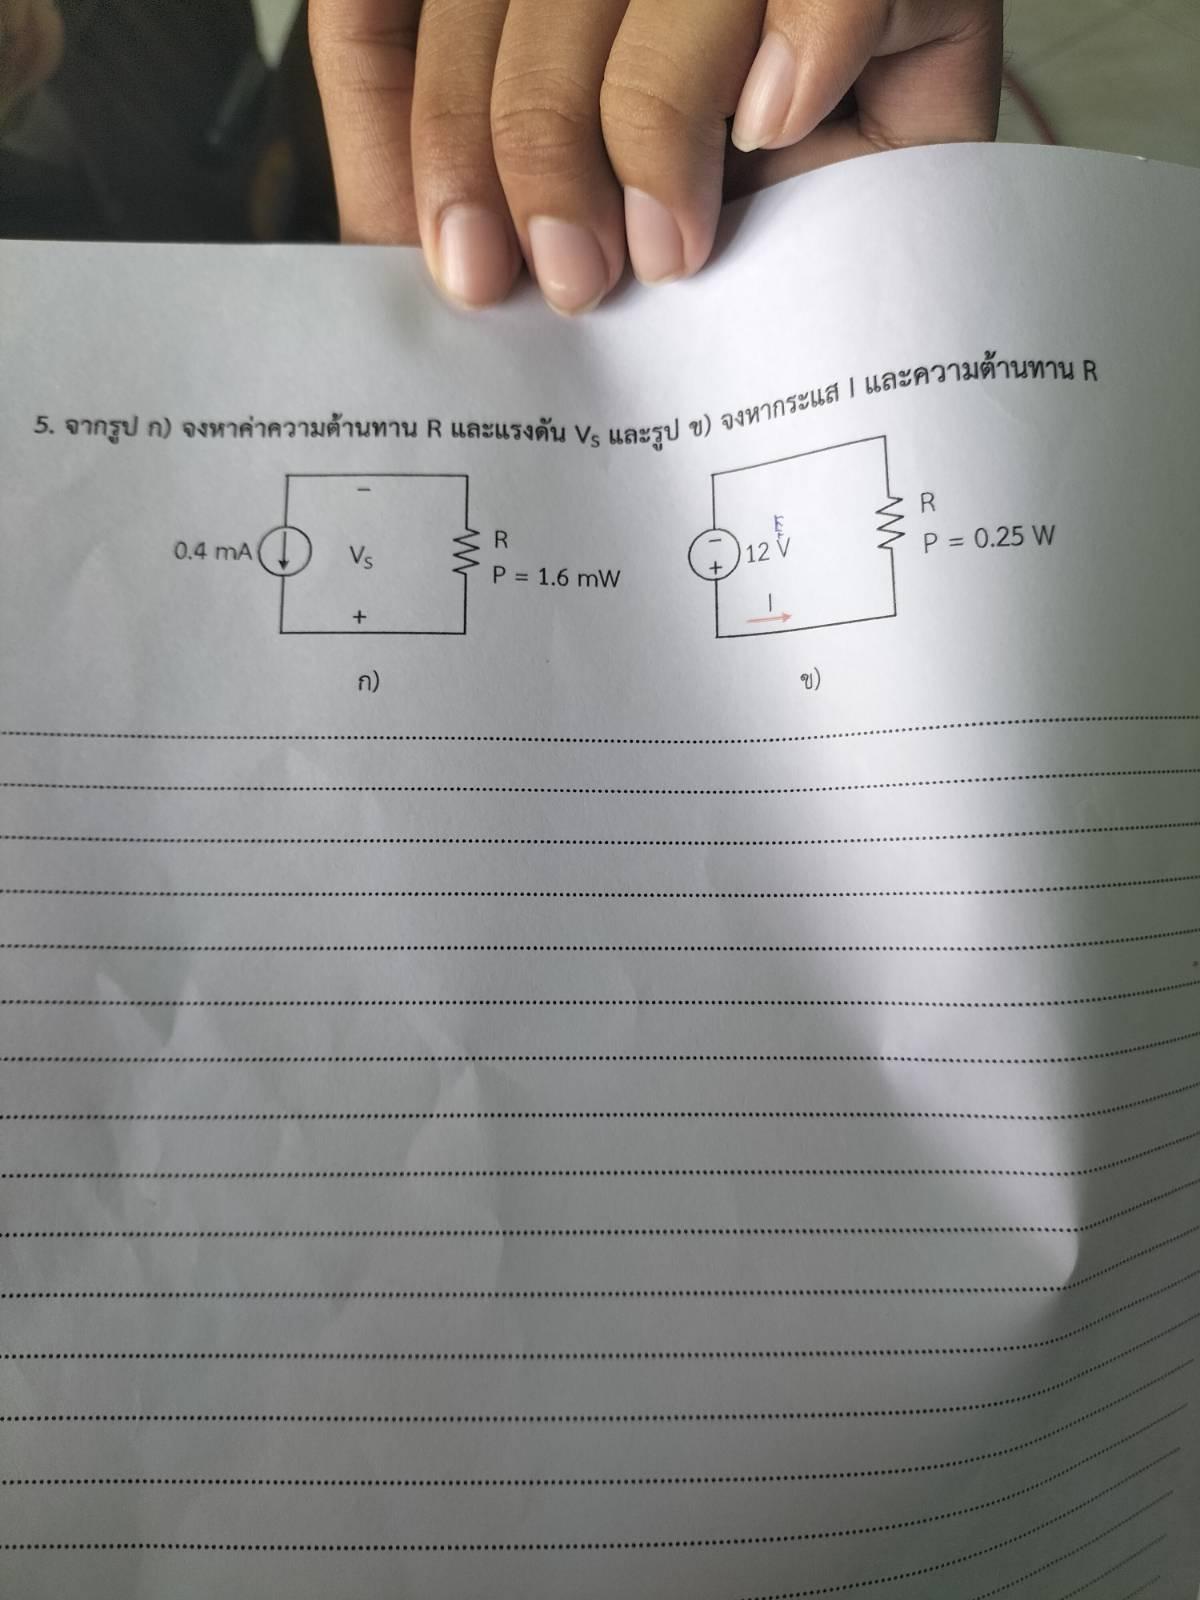 5. จากรูป ก) จงหาค่าความต้านทาน R และแรงดัน VS และรูป ข) จงหากระแส I และความต้านทาน R
−
0.4 mA
VS
R
P = 1.6 mW
+
ก)
−
+
12 V
E
R
P = 0.25 W
I
ข)